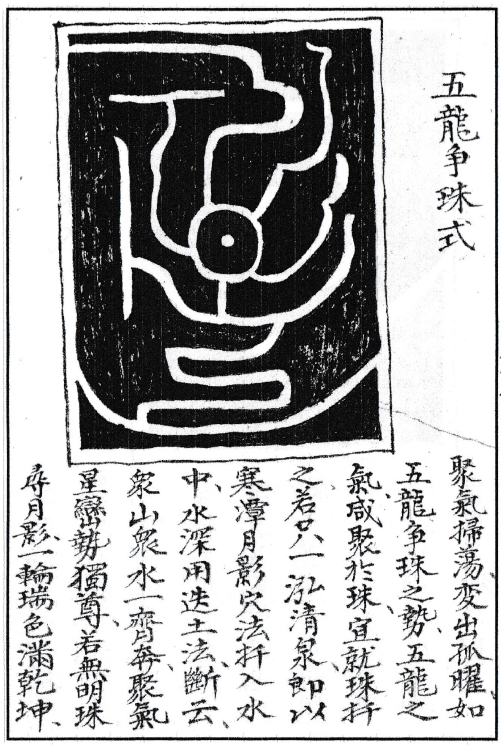 五龍争珠式
聚氣掃蕩变出孤曜如
五龍争珠之勢、五龍之
氣咸聚於珠、宜就珠扦
之、若只一泓清泉、即以
寒潭月影穴法扦入水
中、水深用迭土法、斷云、
衆山衆水一齊奔、聚氣
星巒勢獨尊、若無明珠
尋月影、一輪瑞色滿乾坤、